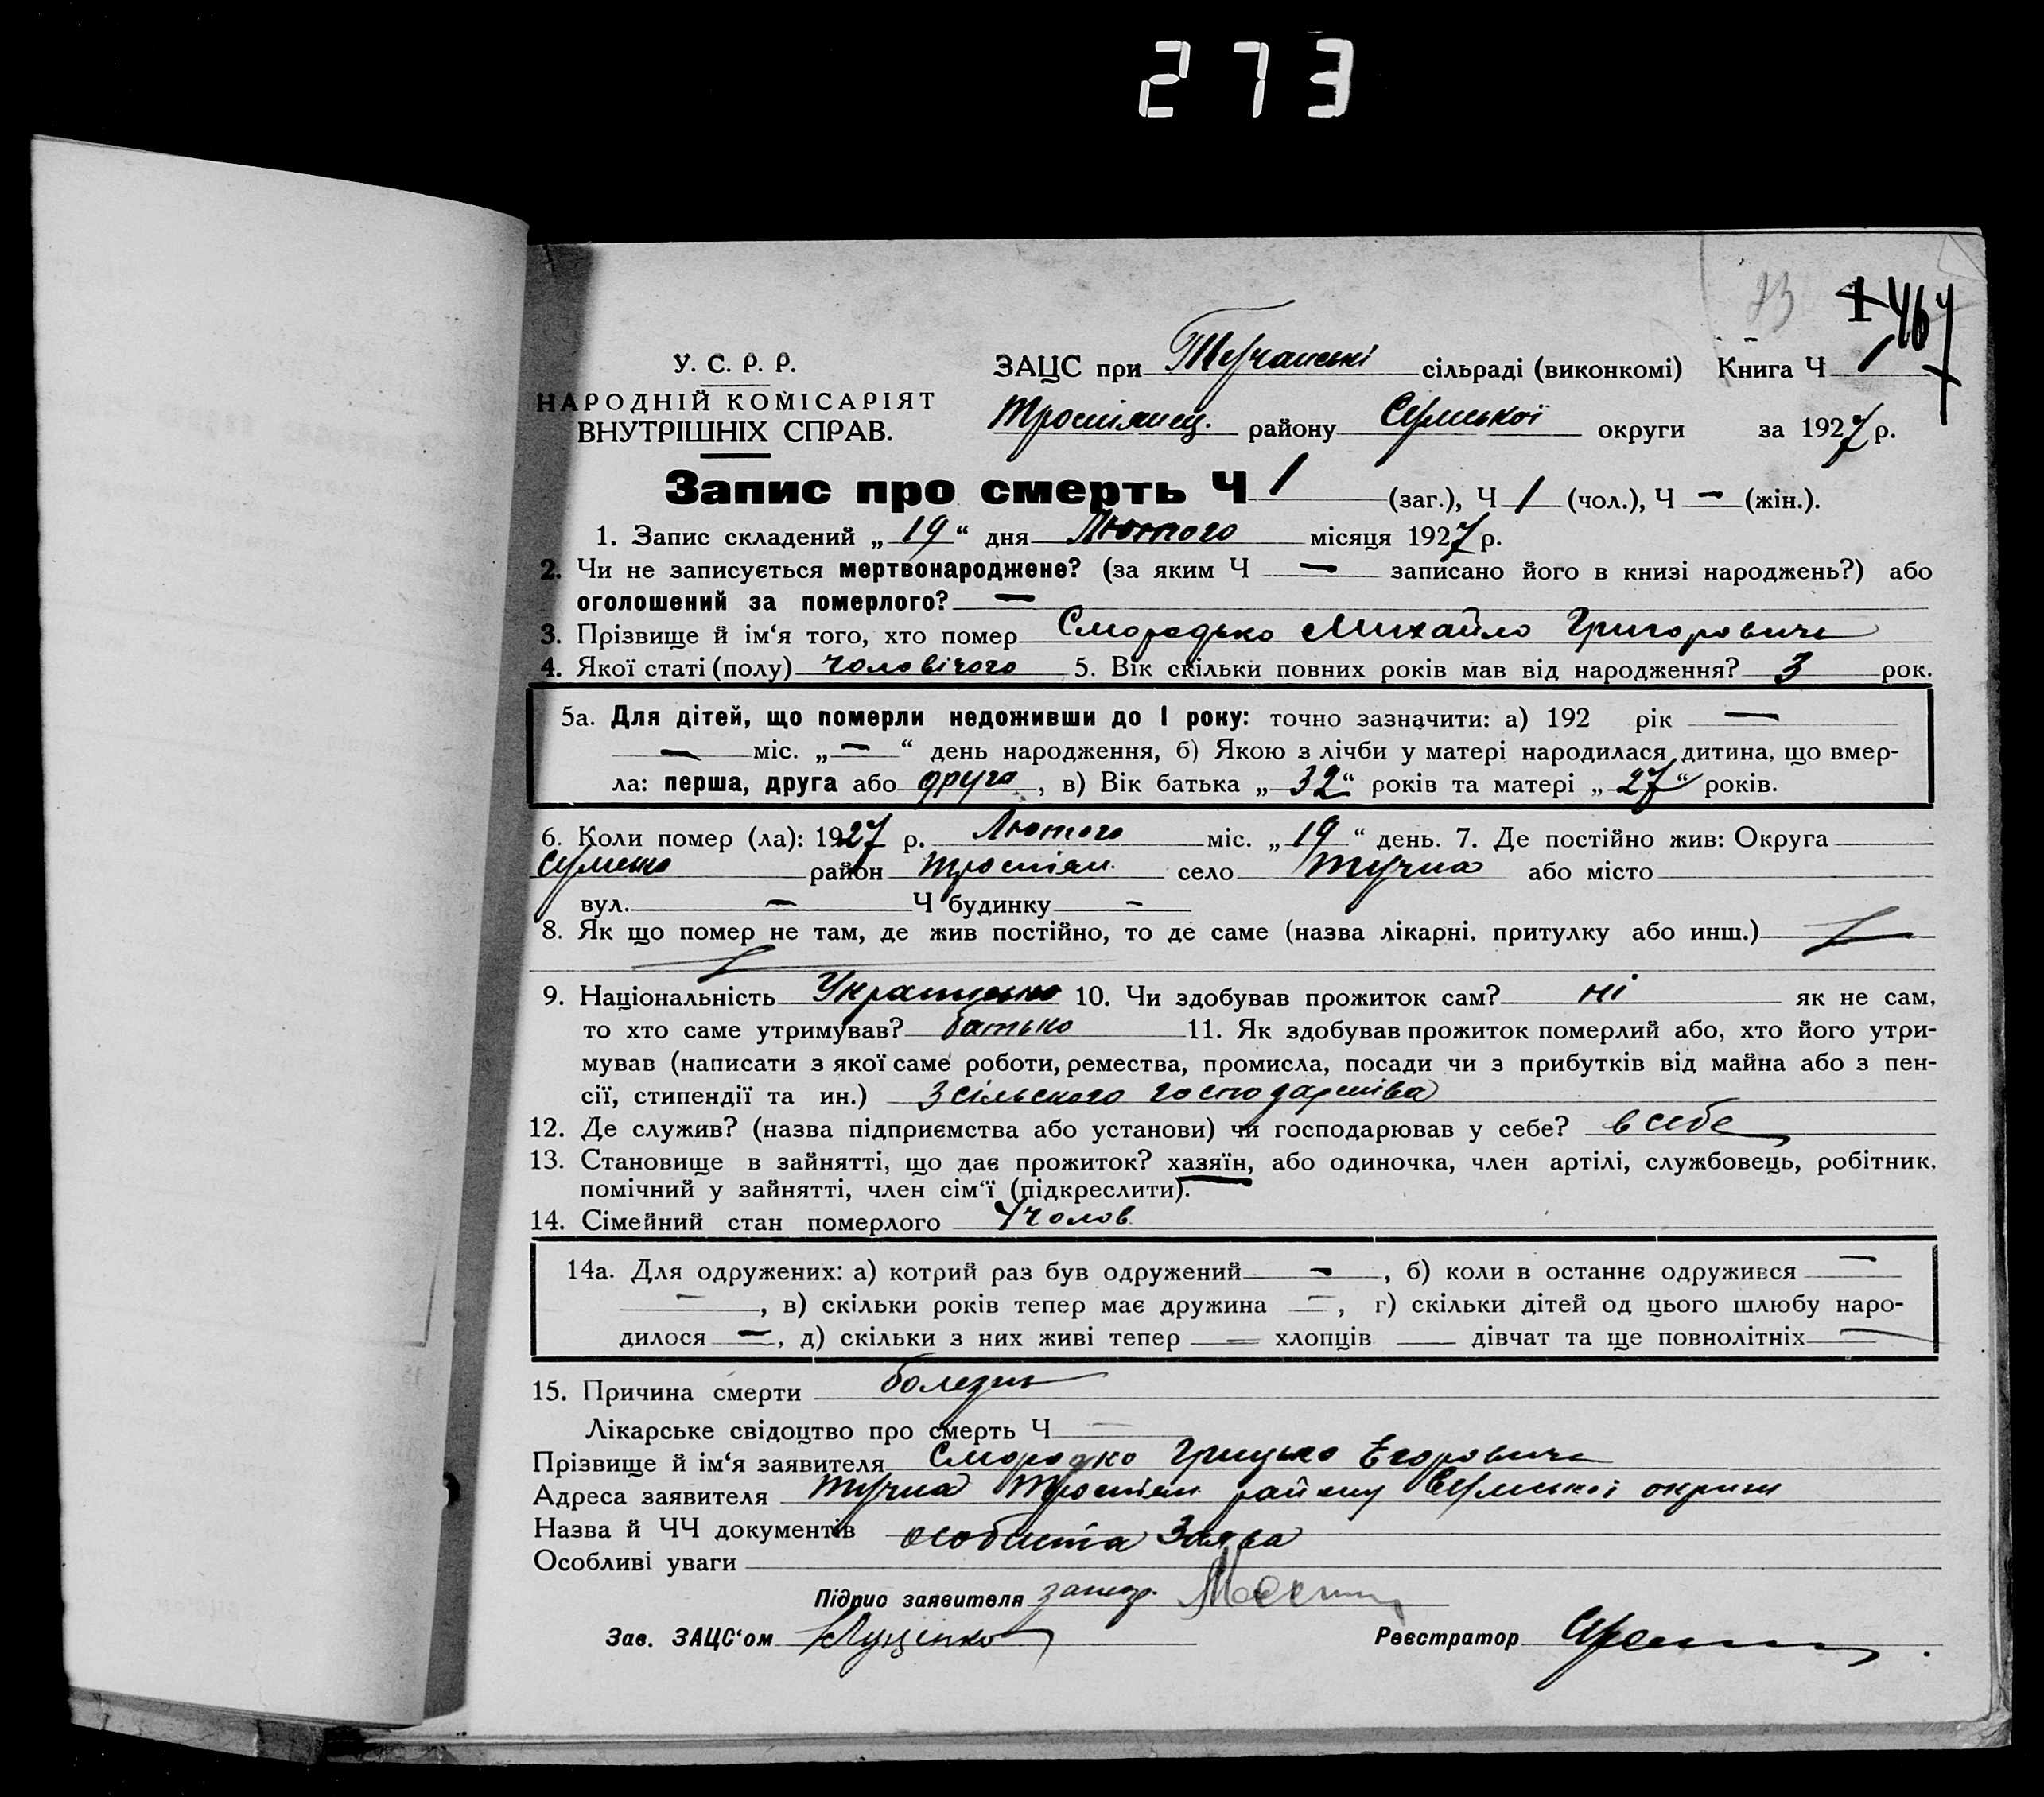 273
23
1 467
У. С. Р. Р.
НАРОДНІЙ КОМІСАРІЯТ
ВНУТРІШНІХ СПРАВ.
ЗАЦС при Тучанські сільраді (виконкомі) Книга Ч 1
Тростянец. району Сумської округи за 1927 р.
Запис про смерть Ч 1 (заг.), Ч 1 (чол.), Ч — (жін.).
1. Запис складений „ 19 “ дня Лютого місяця 1927 р.
2. Чи не записується мертвонароджене? (за яким Ч — записано його в книзі народжень?) або
оголошений за померлого? —
3. Прізвище й ім‘я того, хто помер Смородько Михайло Григоровичь
4. Якої статі (полу) чоловічого 5. Вік скільки повних років мав від народження? 3 рок.
5а. Для дітей, що померли недоживши до 1 року: точно зазначити: а) 192 рік —
— міс. „ — “ день народження, б) Якою з лічби у матері народилася дитина, що вмер-
ла: перша, друга або друга, в) Вік батька „ 32 “ років та матері „ 27 “ років.
6. Коли помер (ла): 1927 р. Лютого міс. „ 19 “ день. 7. Де постійно жив: Округа
Сумська район Тростян. село Тучна або місто
вул. — Ч будинку —
8. Як що помер не там, де жив постійно, то де саме (назва лікарні, притулку або инш.) —
9. Національність 10. Чи здобував прожиток сам? ні як не сам,
то хто саме утримував? батько 11. Як здобував прожиток померлий або, хто його утри-
мував (написати з якої саме роботи, ремества, промисла, посади чи з прибутків від майна або з пен-
сії, стипендії та ин.) З сільського господарства
12. Де служив? (назва підприємства або установи) чи господарював у себе? в себе
13. Становище в зайнятті, що дає прожиток? хазяїн, або одиночка, член артілі, службовець, робітник,
помічний у зайнятті, член сім‘ї (підкреслити).
14. Сімейний стан померлого 4 чолов.
14а. Для одружених: а) котрий раз був одружений —, б) коли в останнє одружився —
—, в) скільки років тепер має дружина —, г) скільки дітей од цього шлюбу наро-
дилося —, д) скільки з них живі тепер — хлопців дівчат та ще повнолітніх —
15. Причина смерти болезнь
Лікарське свідоцтво про смерть Ч —
Прізвище й ім‘я заявителя Смородко Грицько Егоровичь
Адреса заявителя Тучна Тростян. району Сумської округи
Назва й ЧЧ документів особиста Заява
Особливі уваги
Підпис заявителя
Зав. ЗАЦС‘ом Луценко
Реєстратор